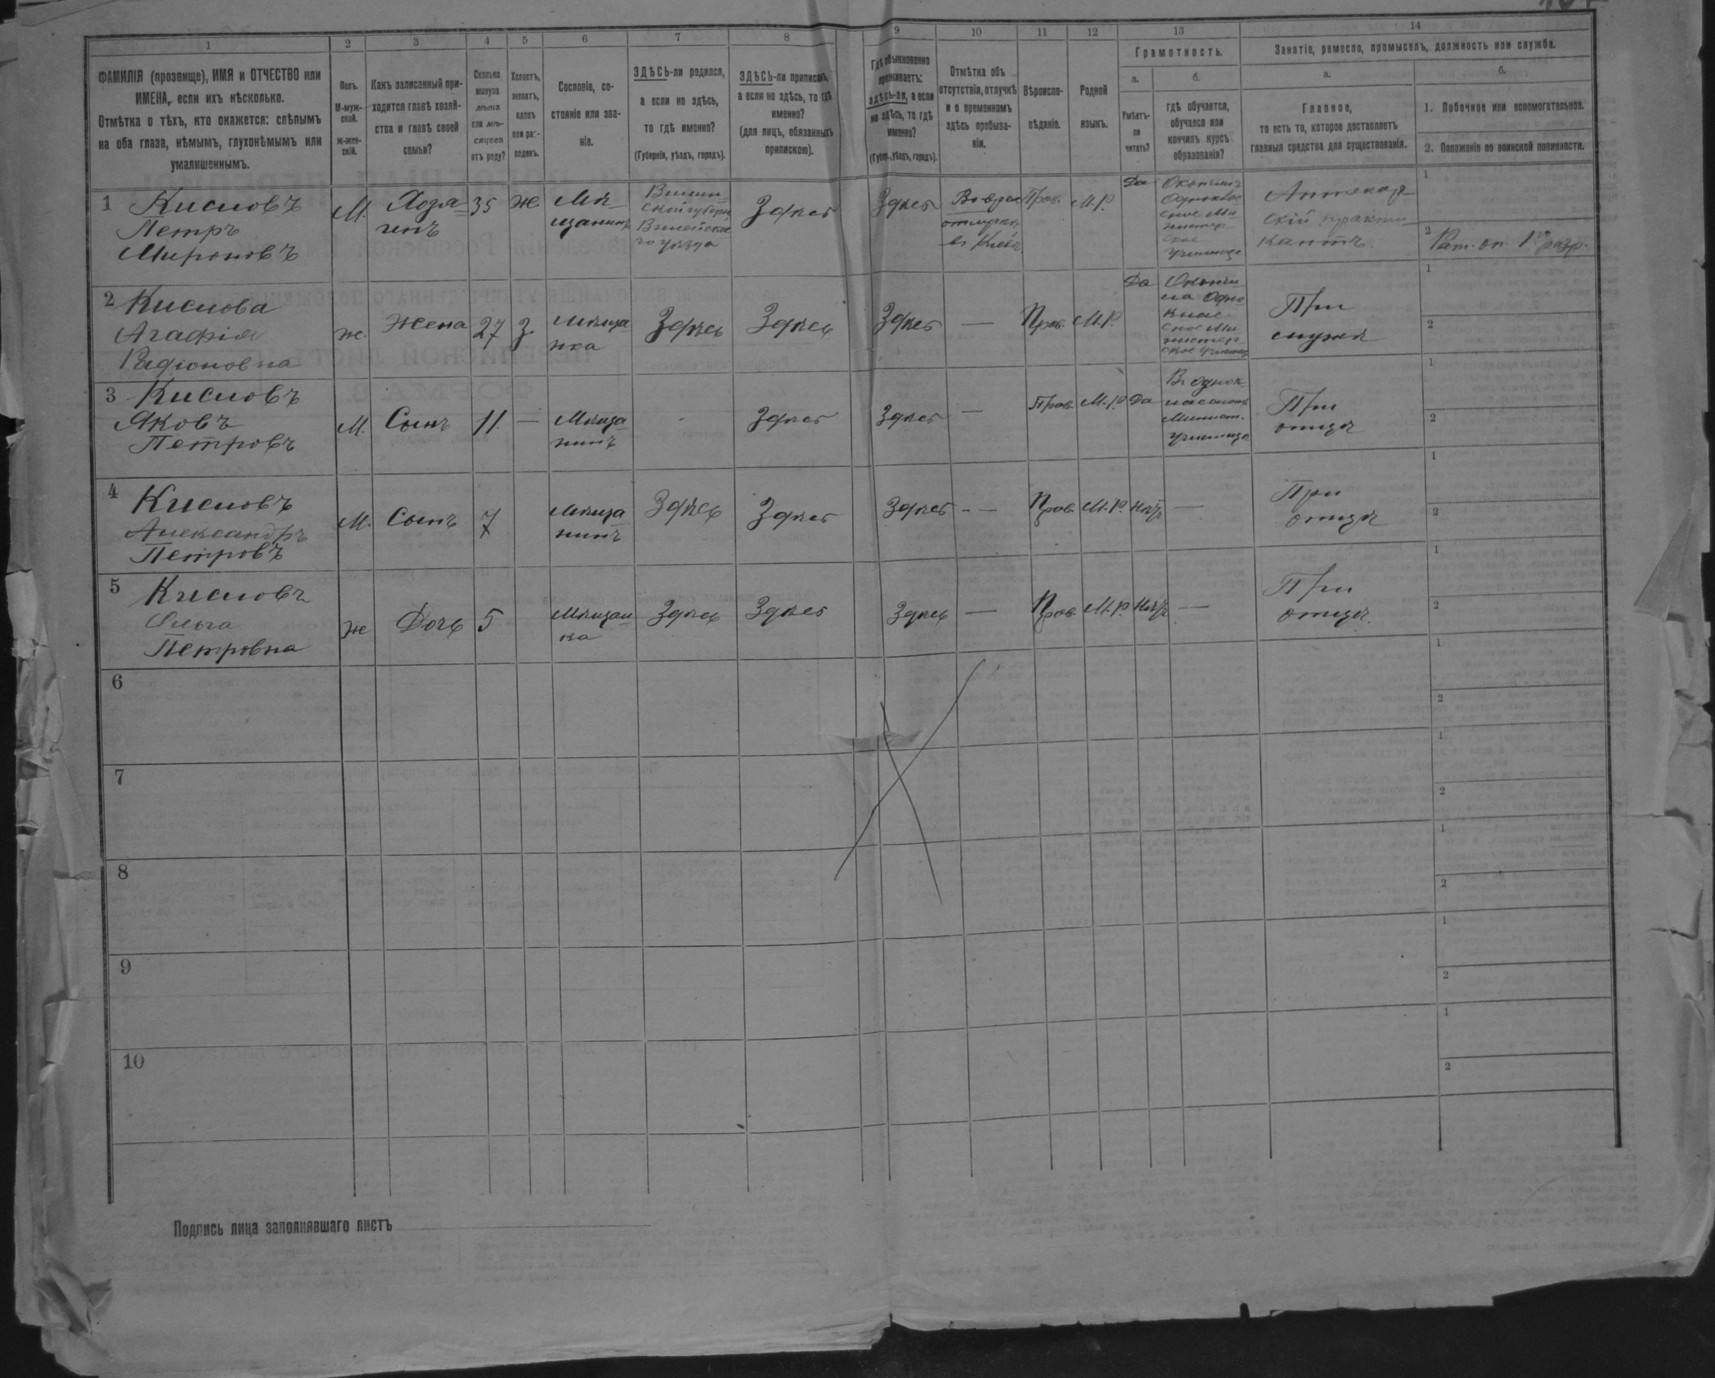 1
2
3
4
5
6
7
8
9
10
11
12
13
14
ФАМИЛІЯ (прозвище), ИМЯ и ОТЧЕСТВО или
ИМЕНА, если ихъ нѣсколько.
Отмѣтка о тѣхъ, кто окажется: слѣпымъ
на оба глаза, нѣмымъ, глухонѣмымъ или
умалишеннымъ.
Полъ.
М-муж-
ской.
Ж-жен-
скій.
Какъ записанный при-
ходится главѣ хозяй-
ства и главѣ своей
семьи?
Сколько
минуло
лѣтъ
или мѣ-
сяцевъ
отъ роду?
Холостъ,
женатъ,
вдовъ
или раз-
веденъ.
Сословіе, со-
стояніе или зва-
ніе.
ЗДѢСЬ-ли родился,
а если не здѣсь,
то гдѣ именно?
(Губернія, уѣздъ, городъ).
ЗДѢСЬ-ли приписанъ,
а если не здѣсь, то гдѣ
именно?
(для лицъ, обязанныхъ
припискою).
Гдѣ обыкновенно
проживаетъ:
здѣсь-ли, а если
не здѣсь, то гдѣ
именно?
(Губерн., уѣздъ, городъ).
Отмѣтка объ
отсутствіи, отлучкѣ
и о временномъ
здѣсь пребыва-
ніи.
Вѣроиспо-
вѣданіе.
Родной
языкъ.
Грамотность.
а.
Умѣетъ-
ли
читать?
б.
гдѣ обучается,
обучался или
кончилъ курсъ
образованія?
Занятіе, ремесло, промыселъ, должность или служба.
а.
Главное,
то есть то, которое доставляетъ
главныя средства для существованія.
б.
1. Побочное или вспомогательное.
2. Положеніе по воинской повинности.
1 Кисловъ
Петръ
Мироновъ
М.
Хозя-
инъ
35
Ж
Мѣ-
щанинъ
Вилен-
ской губерн
Вилейска-
го уѣзда
Здѣсь
Здѣсь
Во врем
отлучкѣ
въ Кіевѣ
Прав.
М.Р.
Да
Окончилъ
Однокла
сное Ми
нистер
ское
Училище
Аптекар-
скій практи
кантъ
1
2 Рат. оп. 1 разр.
2 Кислова
Агафія
Радіоновна
Ж.
Жена
27
З.
Мѣща
нка
Здѣсь
Здѣсь
Здѣсь
—
Прав.
М.Р.
Да
Окончи
ла Одно
клас
сное Ми
нистер
ское Училище
При
мужѣ
1
2
3 Кисловъ
Яковъ
Петровъ
М.
Сынъ
11
—
Мѣща
нинъ
-
Здѣсь
Здѣсь
—
Прав.
М.Р.
Да
Въ однок
ласномъ
Минист.
Училище
При
отцѣ
1
2
4 Кисловъ
Александръ
Петровъ
М.
Сынъ
7
Мѣща
нинъ
Здѣсь
Здѣсь
Здѣсь
— —
Прав.
М.Р.
Нѣтъ
—
При
отцѣ
1
2
5 Кисловъ
Ольга
Петровна
Ж
Дочь
5
Мѣщан
ка
Здѣсь
Здѣсь
Здѣсь
—
Прав
М.Р.
Нѣтъ
—
При
отцѣ.
1
2
6
1
2
7
1
2
8
1
2
9
1
2
10
1
2
Подпись лица заполнявшаго листъ